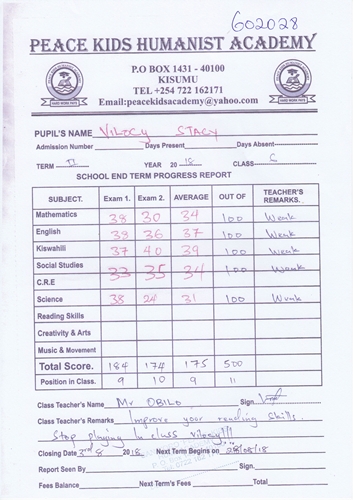 602028
PEACE KIDS HUMANIST ACADEMY
P.O BOX 1431 - 40100
KISUMU
TEL +254 722 162171
Email:peacekidsacademy@yahoo.com
HARD WORK PAYS HARD WORK PAYS
PUPIL'S NAME VILOCY STACY
Admission Number Days Present Days Absent
TERM II YEAR 2018 CLASS C
SCHOOL END TERM PROGRESS REPORT
SUBJECT. Exam 1. Exam 2. AVERAGE OUT OF TEACHER'S REMARKS.
Mathematics 38 30 34 100 Weak
English 38 36 37 100 Weak
Kiswahili 37 40 39 100 Weak
Social Studies
C.R.E 33 35 34 100 Weak
Science 38 24 31 100 Weak
Reading Skills
Creativity & Arts
Music & Movement
Total Score. 184 174 175 500
Position in Class. 9 10 9 11
Class Teacher's Name Mr OBILO Sign
Class Teacher's Remarks Improve your reading skills.
Stop playing in class vilocy!!!
Closing Date 3rd 8 2018 Next Term Begins on 28/08/18
Report Seen By Sign.
Fees Balance Next Term's Fees Total